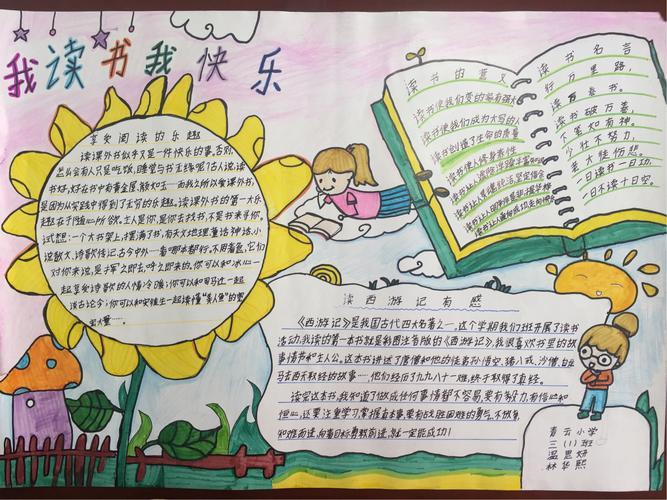 我读书我快乐
享受阅读的乐趣
读课外书似乎又是一件快乐的事,否则,
怎么会有人只是吃饭,睡觉与书连线呢?古人说,读
书好,好在书中有黄金屋,颜如玉—而我之所以爱课外书,
是因为从实践中得到了无穷的乐趣。读课外书的第一大乐
趣在于随心所欲。主人是你,是你去找书,不是书来寻你。
试想:一个大书架上,摆满了书,有天文地理童话神话,小
说散文,诗歌传记古今中外—看哪本都行,不用着急。它们
对你来说,是挥之即去,呼之即来的。你可以和冰心一
起享受诗歌的人情冷暖;你可以和司马迁一起
谈古论今;你可以和安徒生一起读懂“美人鱼”的
宽大量……
读书的意义
读书使我们变的越有强大
读书使我们成为大写的人
读书创造了生命的质量
读书使人修身养性
读书让人
读书让人
读书让人
读书名言
行万里路,
读万卷书。
读书破万卷,
下笔如有神。
少壮不努力,
老大徒伤悲。
一日读书一日功,
一日不读十日空。
读西游记有感
《西游记》是我国古代四大名著之一,这个学期我们班开展了读书
活动,我读的第一本书就是彩图注音版的《西游记》,我很喜欢书里的故
事情节和主人公。这本书讲述了唐僧和他的徒弟孙悟空、猪八戒、沙僧、白龙
马去西天取经的故事……他们经历了九九八十一难,终于取得了真经。
读完这本书,我知道了做成任何事情都不容易,要有努力,有信心和
恒心,还要注重学习,掌握真本事,要有战胜困难的勇气,不放弃
知难而进,向着目标勇敢前进,就一定能成功!
青云小学
三(1)班
温思妍
林华熙